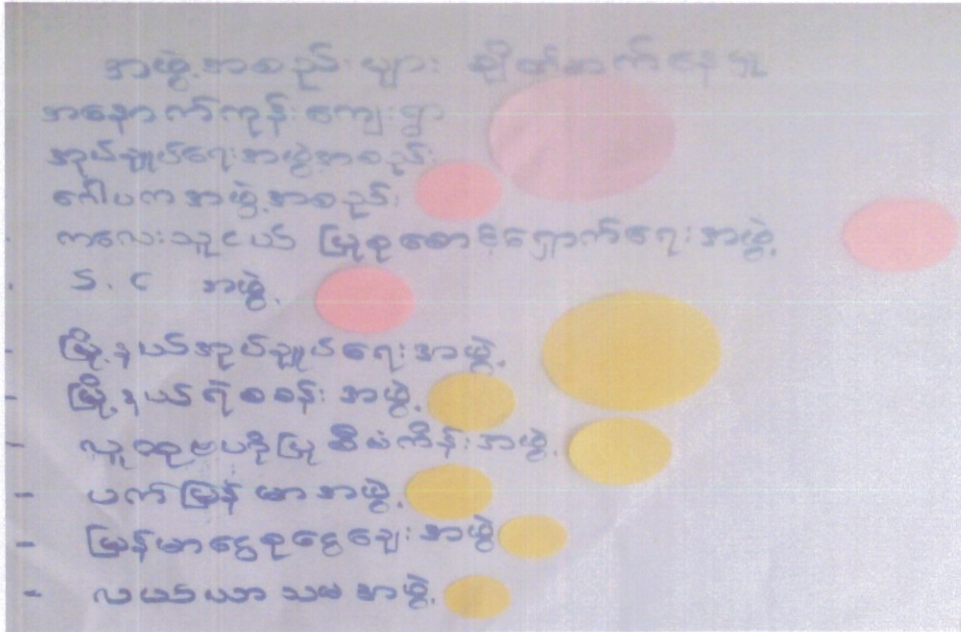 အဖွဲ့အစည်းများ ချိတ်ဆက်နေမှု
အနောက်ကုန်းကျေးရွာ
အုပ်ချုပ်ရေးအဖွဲ့အစည်း
ဂေါပကအဖွဲ့အစည်း
ကလေးသူငယ် ပြုစုစောင့်ရှောက်ရေးအဖွဲ့
S.C အဖွဲ့
- မြို့နယ်အုပ်ချုပ်ရေးအဖွဲ့
- မြို့နယ်ရဲစခန်းအဖွဲ့
- လူထုဗဟိုပြုစီမံကိန်းအဖွဲ့
- ပက်မြန်မာအဖွဲ့
- မြန်မာငွေစုငွေချေးအဖွဲ့
- လယ်ယာသမအဖွဲ့